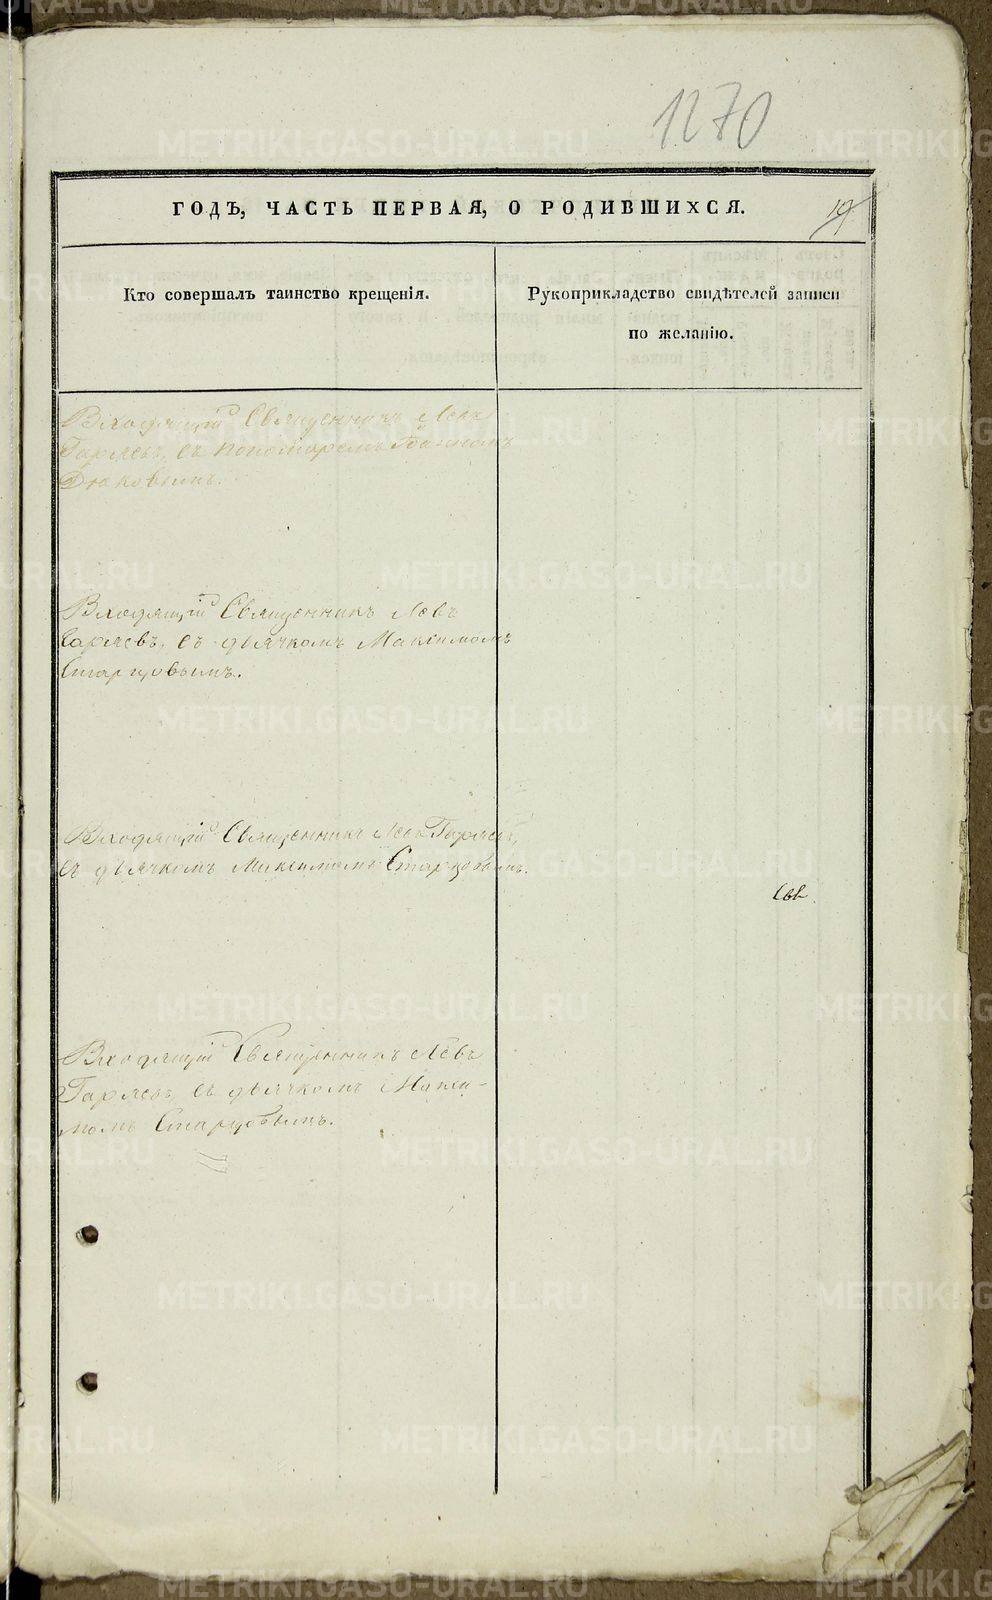 1270
ГОДЪ, ЧАСТЬ ПЕРВАЯ, О РОДИВШИХСЯ.
19
Кто совершалъ таинство крещенія.
Рукоприкладство свидѣтелей записи
по желанію.
Входящій Священникъ Левъ
Гаряевъ, съ пономаремъ
Входящій Священникъ Левъ
Гаряевъ, съ дьячкомъ Максимомъ
Старцовымъ.
Входящій Священникъ Левъ Гаряевъ,
съ дьячкомъ Максимомъ Старцовымъ.
Входящій Священникъ Левъ
Гаряевъ, съ дьячкомъ Макси-
момъ Старцовымъ.
METRIKI.GASO-URAL.RU